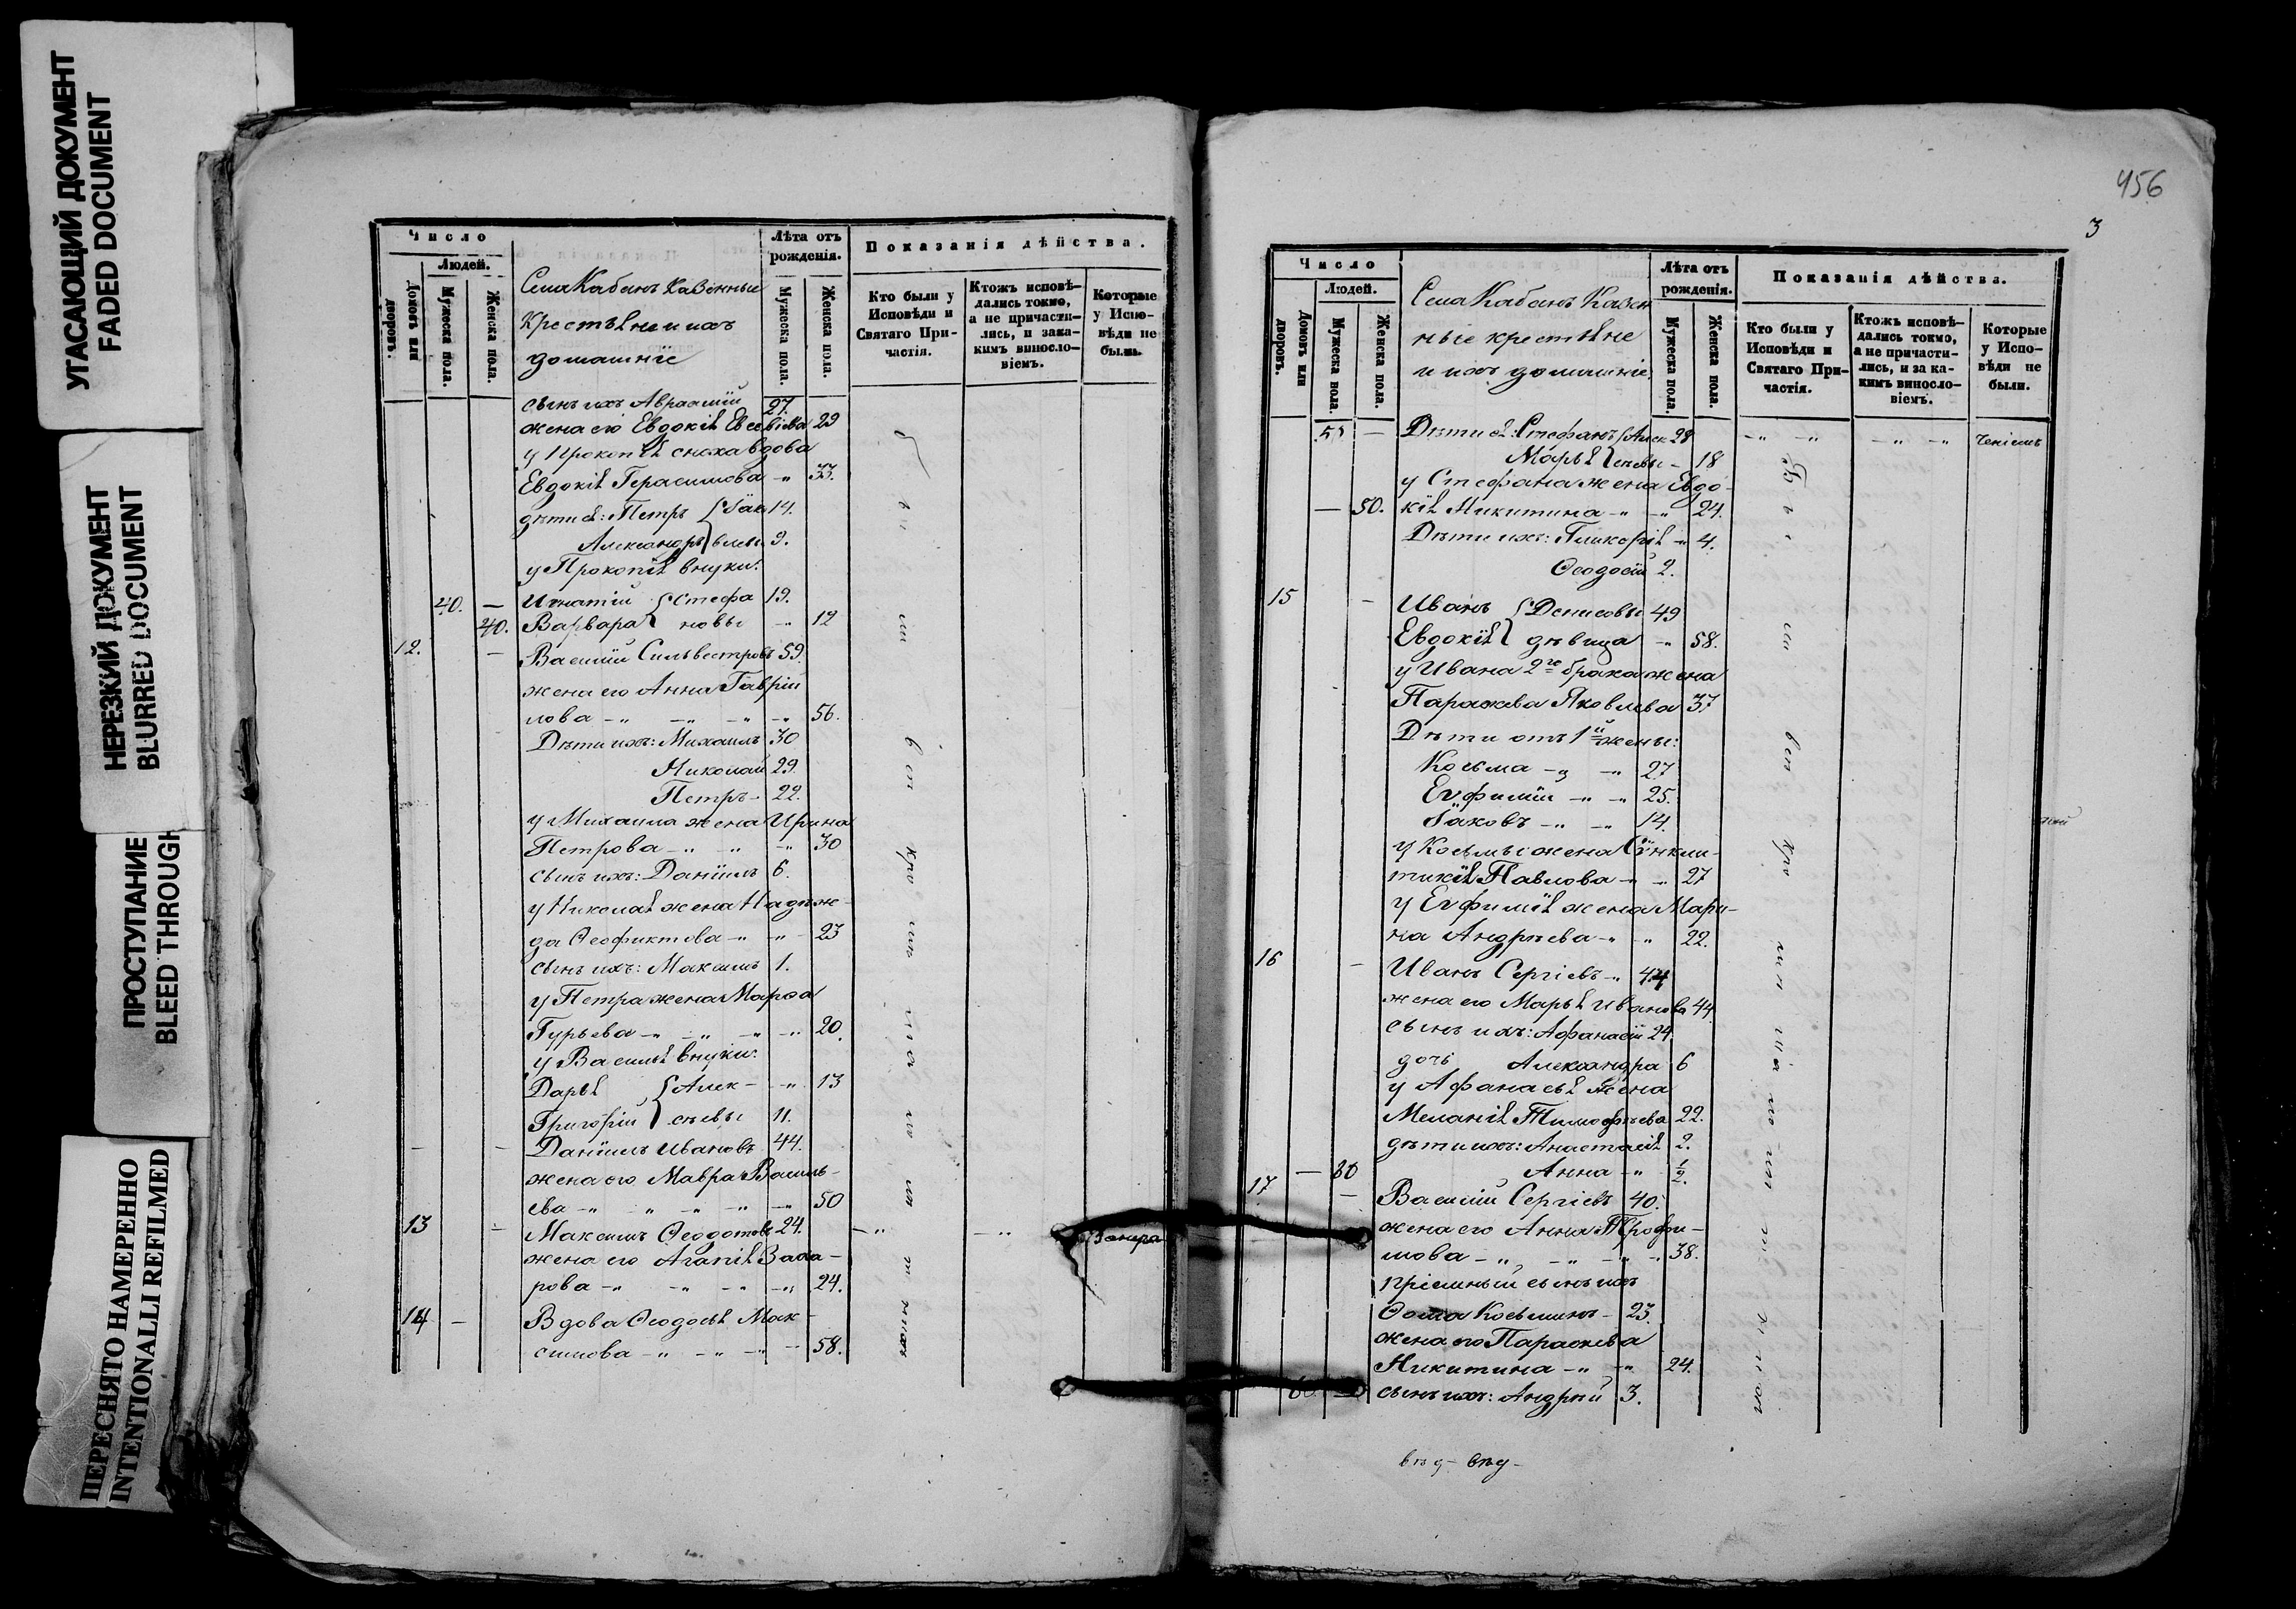 УГАСАЮЩИЙ ДОКУМЕНТ
FADED DOCUMENT
НЕРЕЗКИЙ ДОКУМЕНТ
BLURRED DOCUMENT
ПРОСТУПАНИЕ
BLEED THROUGH
ПЕРЕСНЯТО НАМЕРЕННО
INTENTIONALLI REFILMED
Число
Людей.
Домовъ или дворовъ.
Мужеска пола.
Женска пола.
Села Кабанъ Казенные
крестьяне и ихъ
домашніе
Лѣта отъ
рожденія.
Мужеска пола.
Женска пола.
Показанія дѣйства.
Кто были у
Исповѣди и
Святаго При-
частія.
Ктожъ исповѣ-
дались токмо,
а не причасти-
лись, и зака-
кимъ виносло-
віемъ.
Которые
у Испо-
вѣди не
были.
сынъ ихъ Авраамій 27.
жена его Евдокія Евсевіева 29
у Прокопія сноха вдова
Евдокія Герасимова -„ 33.
дѣти ея: Петръ Іак 14.
Александръ влевы 9.
у Прокопія внуки:
40. — Игнатій Стефа 19.
40. Варвара новы -„ 12
12. — Василій Сильвестровъ 59.
жена его Анна Гаврій
лова -„ -„ -„ -„ 56.
Дѣти ихъ: Михаилъ 30
Николай 29.
Петръ - 22.
у Михаила жена Ирина
Петрова -„ -„ -„ 30
сынъ ихъ: Даніилъ 6.
у Николая жена Надеж-
да Ѳеофиктова -„ -„ 23
сынъ ихъ: Максимъ 1.
у Петра жена Марѳа
Гурьева -„ -„ -„ -„ 20.
у Василія внуки:
Дарья Алек- -„ 13
Григорій сѣевы 11.
- - Даніилъ Ивановъ 44.
жена его Мавра Василь-
ева -„ „ -„ -„ -„ 50
13 - Максимъ Ѳеодотовъ 24. -„ -„
жена его Агапія Заха-
рова -„ -„ -„ -„ 24.
14 — Вдова Ѳеодосья Мак-
симова -„ -„ -„ -- 58.
456
3
Число
Людей.
Домовъ или дворовъ.
Мужеска пола.
Женска пола.
Села Кабанъ Казен
ные крестьяне
и ихъ домашніе.
Лѣта отъ
рожденія.
Мужеска пола.
Женска пола.
Показанія дѣйства.
Кто были у
Исповѣди и
Святаго При-
частія.
Ктожъ исповѣ-
дались токмо,
а не причасти-
лись, и за ка-
кимъ виносло-
віемъ.
Которые
у Испо-
вѣди не
были.
— Дѣти ея: Стефанъ Алек 28 -„ -„ -„ -„
Марья сѣевы - 18
у Стефана жена Евдо-
— 50. кія Никитина -„ -„ 24.
Дѣти ихъ: Гликерія -„ 4.
Ѳеодосій 2.
15 - Иванъ Денисовы 49
Евдокія дѣвица -„ 58.
у Ивана 2го брака жена
Параскева Яковлева 37
Дѣти отъ 1й жены:
Косьма -„ -„ 27
Евфимій -„ -„ 25.
Іаковъ -„ -„ 14.
у Косьмы жена Сѵнкли-
тикія Павлова -„ -„ 27
у Евфимія жена Мари-
на Андрѣева -„ -„ 22.
16 - Иванъ Сергіевъ -„ 44
жена его Марья Иванова 44
сынъ ихъ: Аѳанасій 24.
дочь Александра 6
у Аѳанасья жена
Меланія Тимоѳѣева 22.
дѣти ихъ: Анастасія 2.
— Анна -„ ½.
17 - Василій Сергіевъ 40.
жена его Анна Трофи-
мова -„ -„ -„ 38.
пріемный сынъ ихъ
Ѳома Косьминъ - 23.
жена его Параскева
Никитина -„ -„ 24.
сынъ ихъ: Андрей 3.